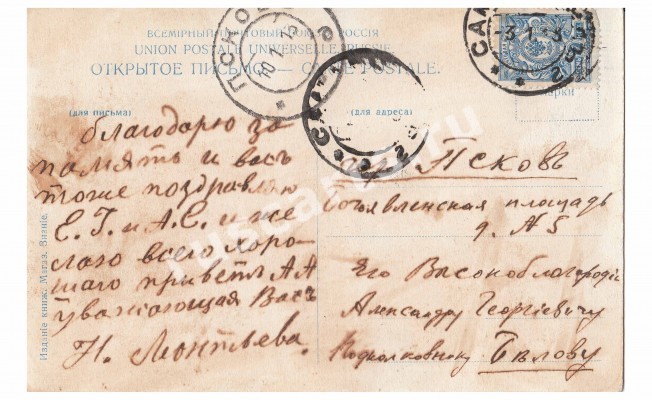 ВСЕМІРНЫЙ ПОЧТОВЫЙ СОЮЗЪ. РОССІЯ
UNION POSTALE UNIVERSELLE. RUSSIE.
ОТКРЫТОЕ ПИСЬМО.—CARTE POSTALE.
(для письма)
(для адреса)
марки
Благодарю за
память и васъ
тоже поздравляю
Е. Г. и А. С. и же
лаю всего хоро
шаго приветъ А А
уважающая Васъ
Н. Леонтьева.
Псковъ
Богоявленская площадь
д. №5
Его Высокоблагородію
Александру Георгіевичу
Подполковнику Бѣлову
Изданіе книж. Магаз. Знаніе.
10 1 15
-3 1